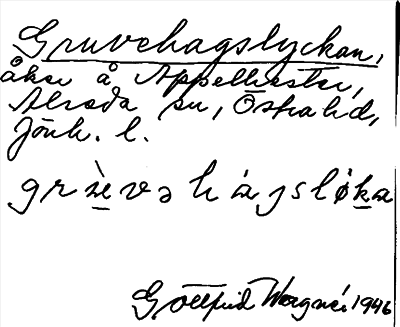 Gruvehagslyckan,
åker å Appelkestar,
Alseda sn, Östra hd,
Jönk. l.
grævəhagsløka
Gottfrid Wagnér 1946